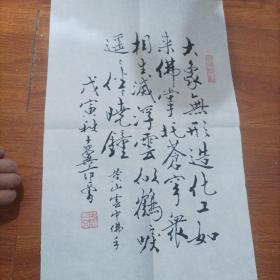 大象無形造化工如
来佛掌托蒼穹報
相生滅浮雲似鶴唳
遥
曉鐘
黄山雲中佛手
戊寅秋